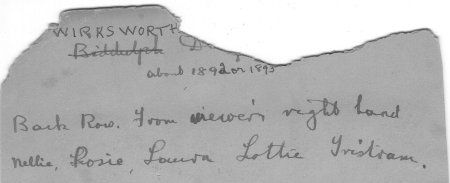 WIRKSWORTH
Biddulph
about 1892 or 1893
Back Row. From viewer's right hand
Nellie, Rosie, Laura Lottie Tristram.